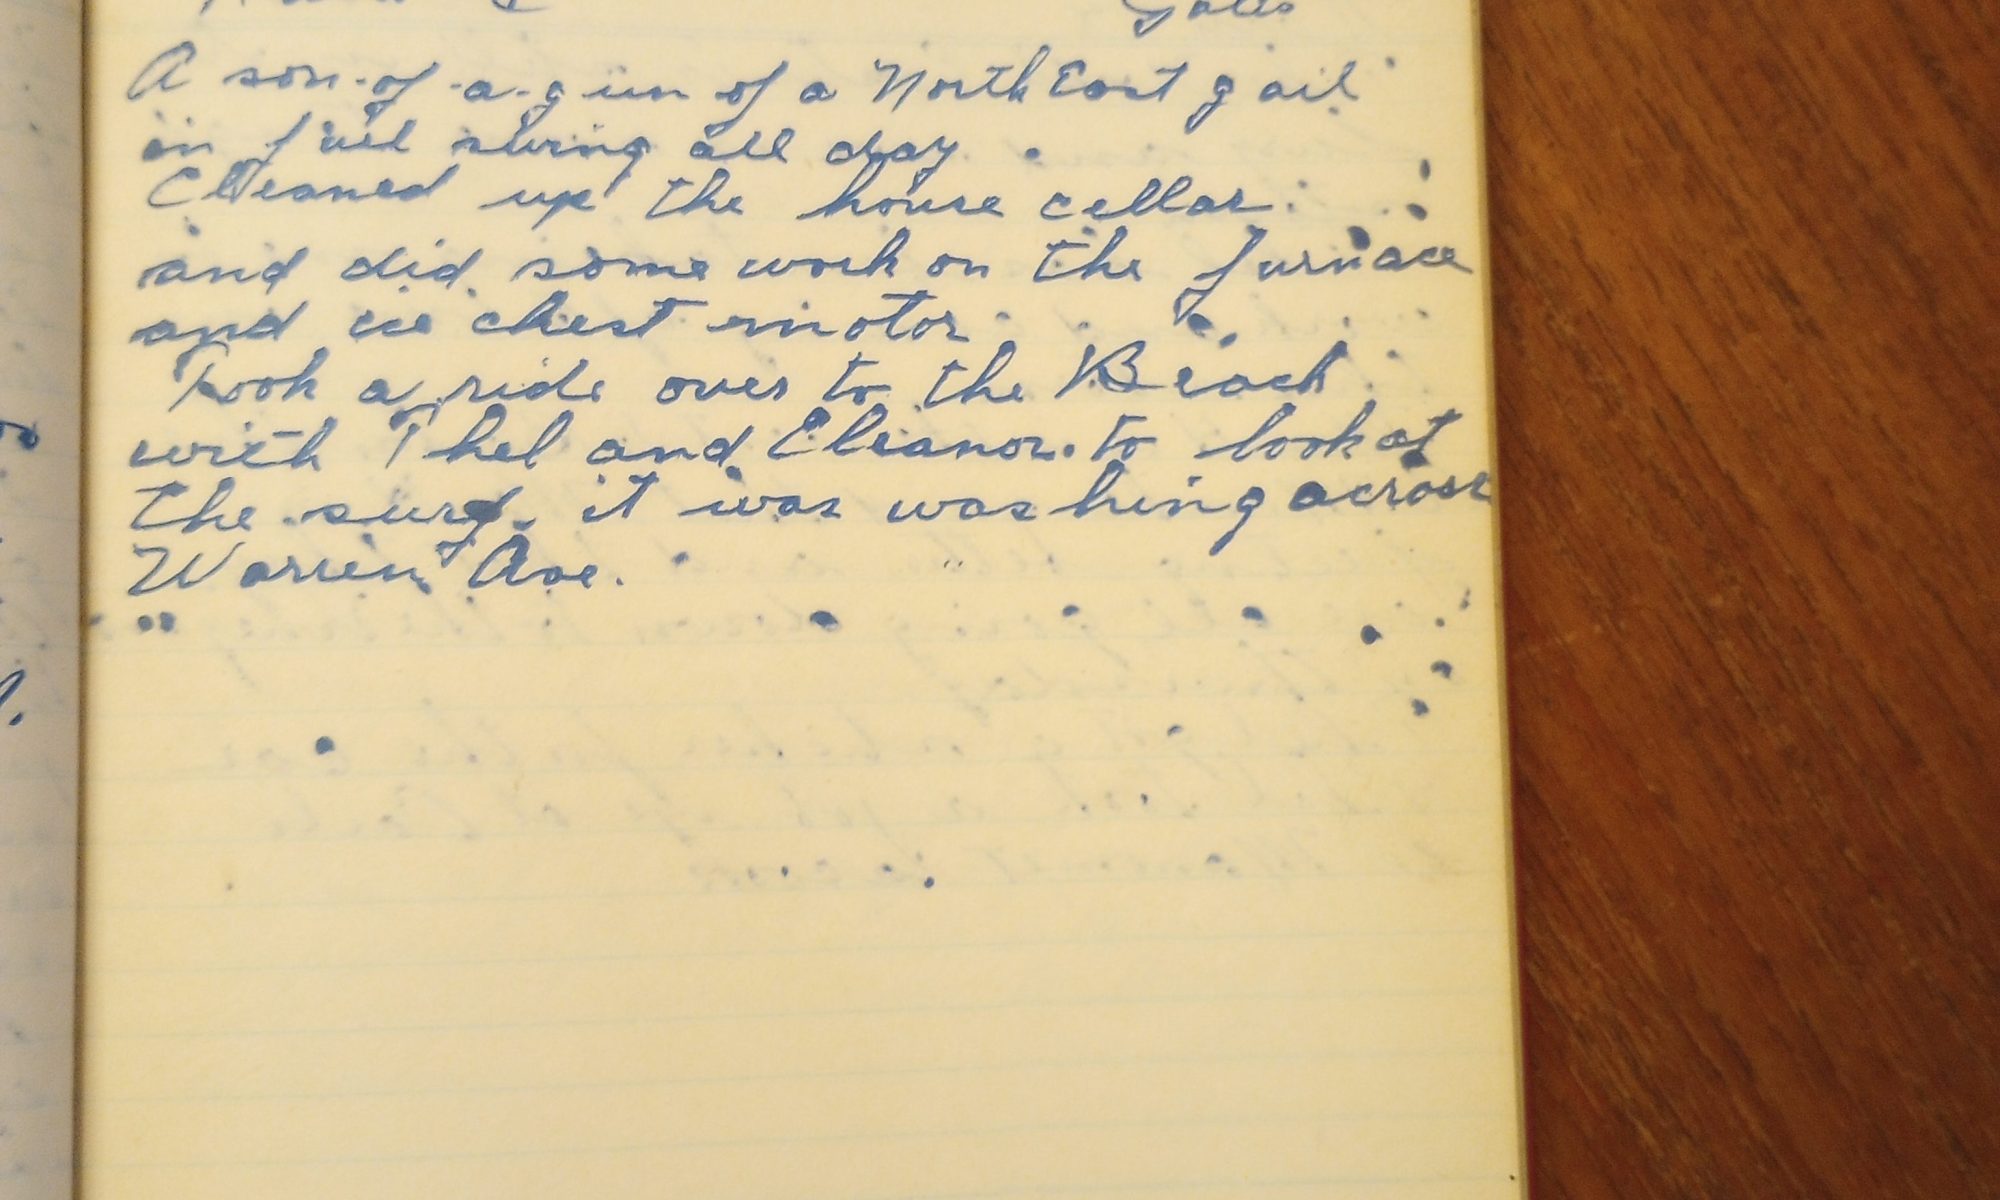 A son-of-a-gun of a North East gail
in full swing all day.
Cleaned up the house cellar.
and did some work on the furnace
and ice chest motor.
Took a ride over to the Beach
with Thel and Eleanor. to look at
the surf. it was washing across
Warren Ave.